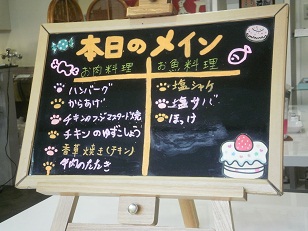 本日のメイン
お肉料理
ハンバーグ
からあげ
チキンのフジマスタード焼
チキンのゆずこしょう
香草焼き(チキン)
牛肉のたたき
お魚料理
塩シャケ
塩サバ
ほっけ